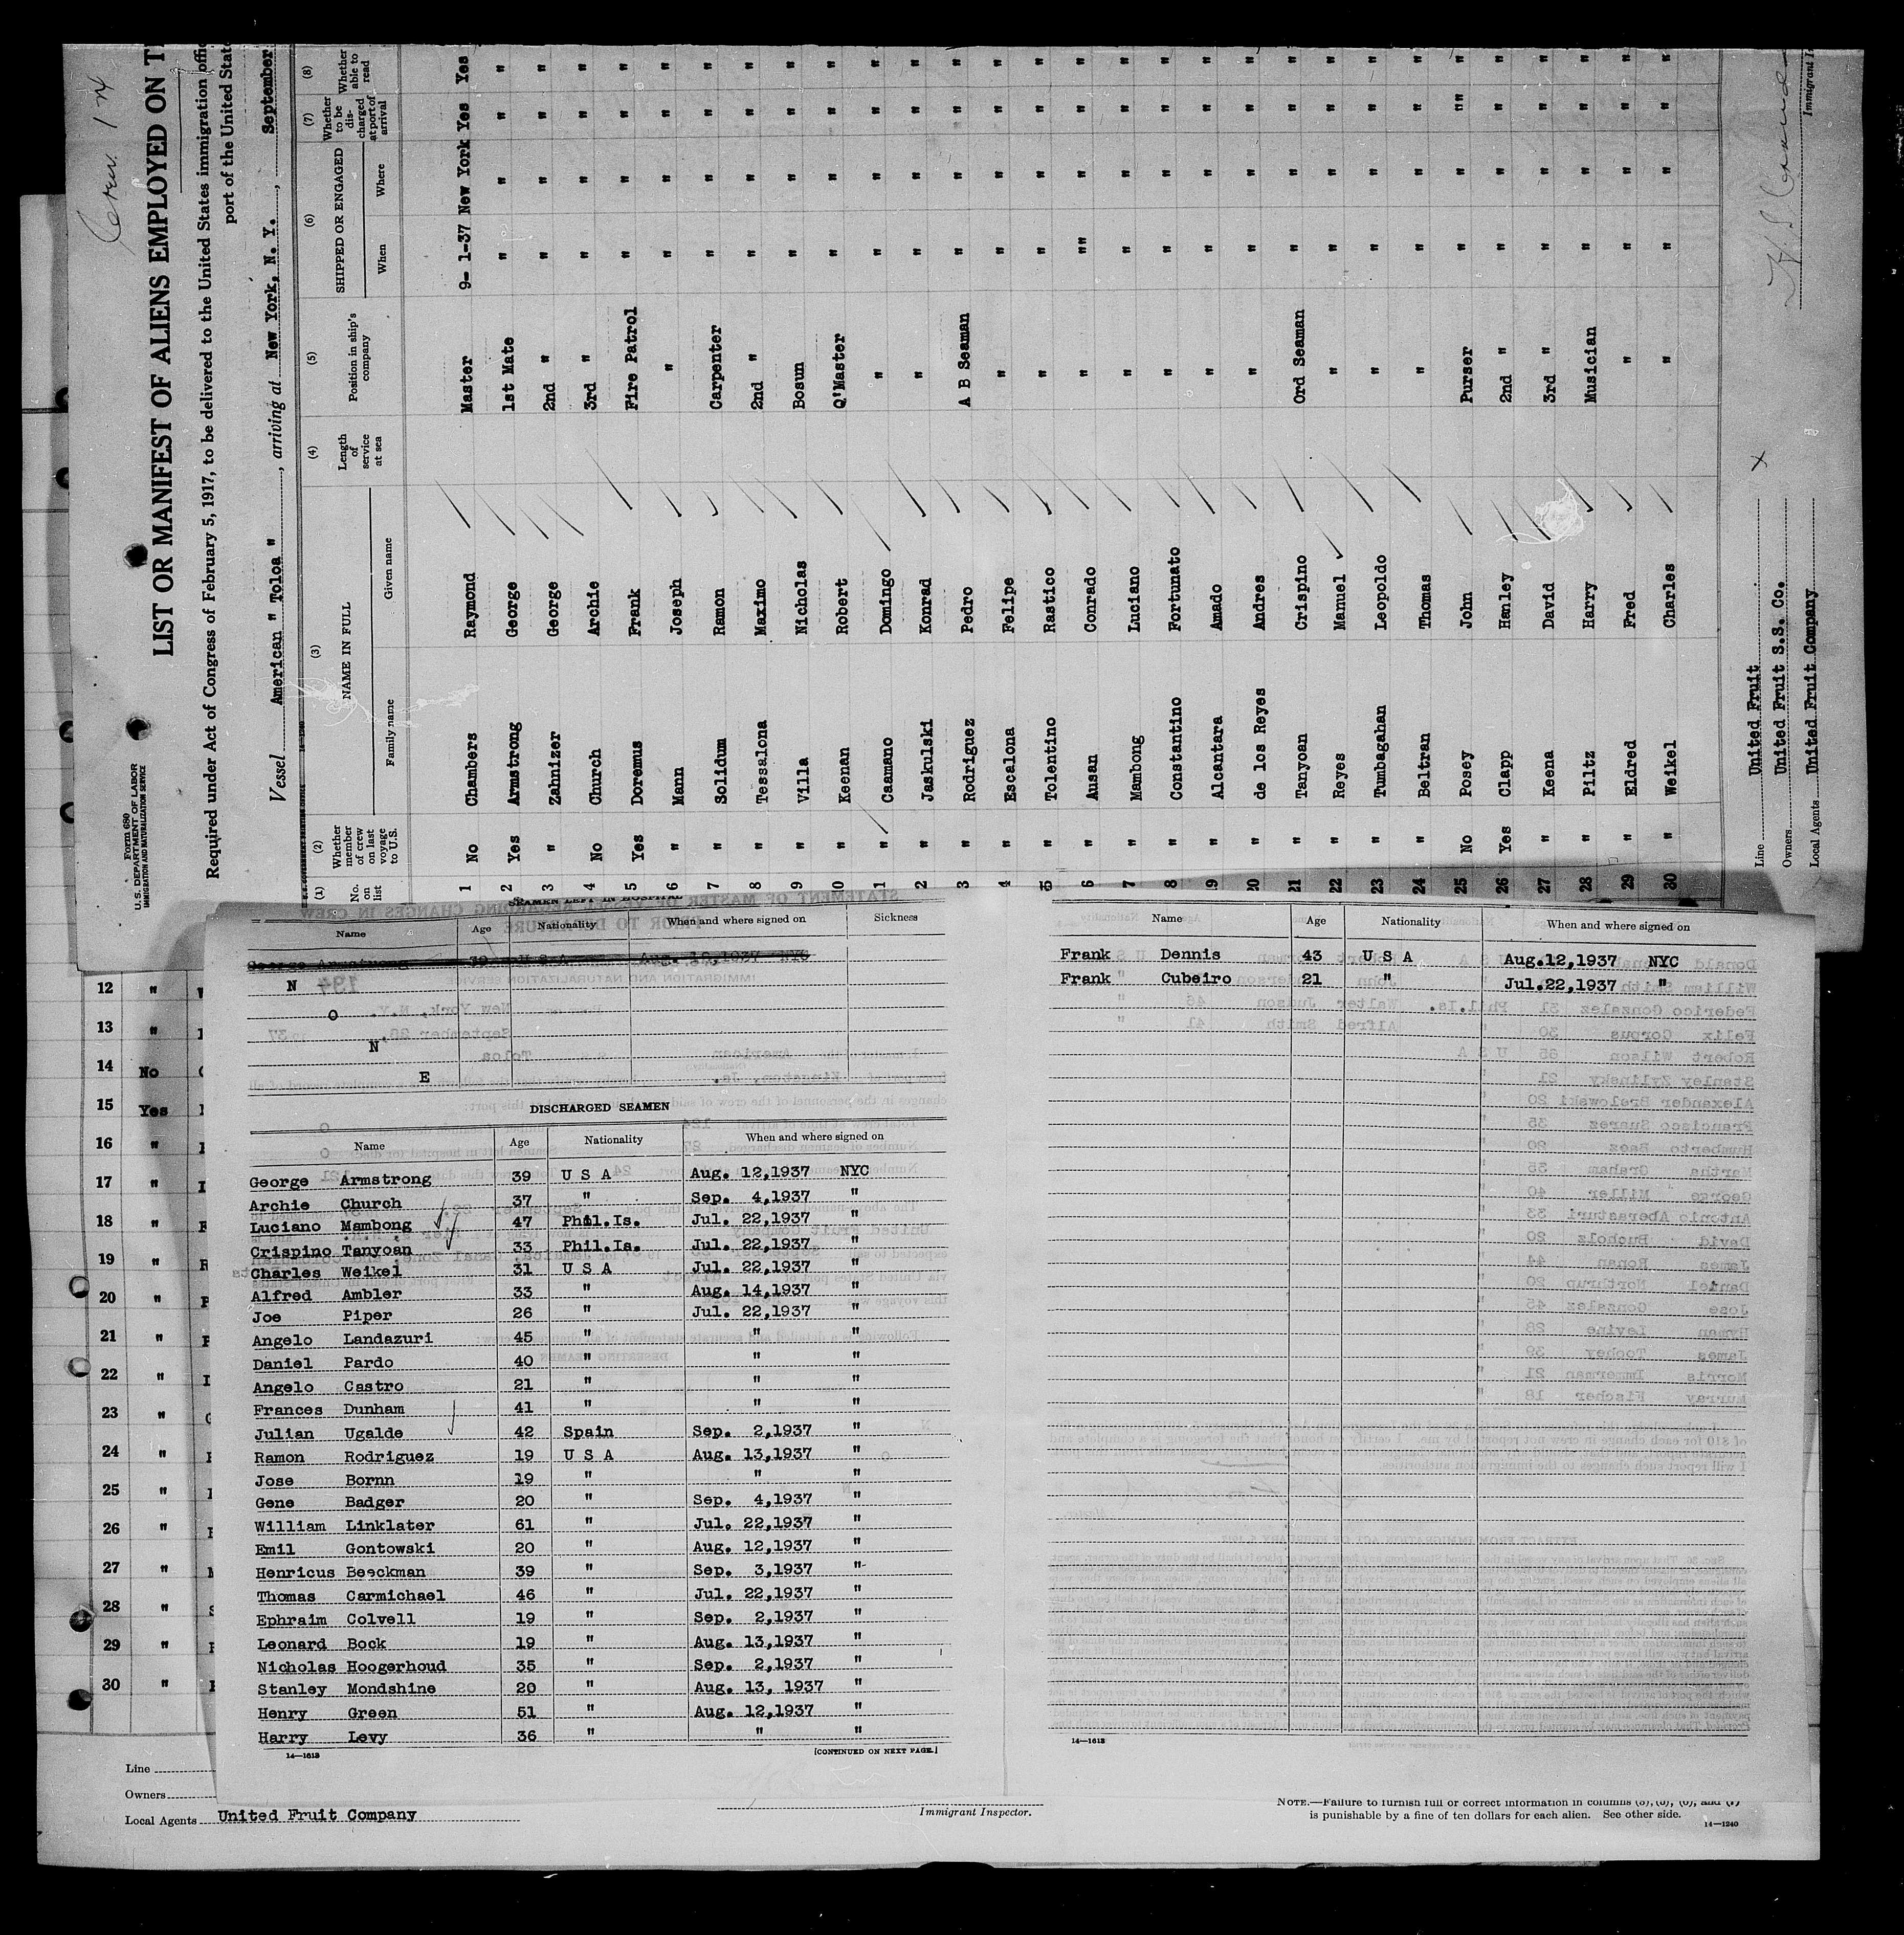 Crew 1 N
Form 680
U. S. DEPARTMENT OF LABOR
IMMIGRATION AND NATURALIZATION SERVICE
LIST OR MANIFEST OF ALIENS EMPLOYED ON
Required under Act of Congress of February 5, 1917, to be delivered to the United States immigration
port of the United
Vessel American " Toloa ", arriving at New York, N. Y., September
(1) No. on list (2) Whether member of crew on last voyage to U.S. (3) NAME IN FULL Family name Given name (4) Length of service at sea (5) Position in ship's company (6) SHIPPED OR ENGAGED When Where (7) Whether to be discharged at port of arrival (8) Whether able to read
1 No Chambers Raymond Master 9- 1-37 New York Yes Yes
2 Yes Armstrong George 1st Mate " " " "
3 " Zahnizer George 2nd " " " " "
4 No Church Archie 3rd " " " " "
5 Yes Doremus Frank Fire Patrol " " " "
6 " Mann Joseph " " " " "
7 " Solidum Ramon Carpenter " " " "
8 " Tessalona Maximo 2nd " " " " "
9 " Villa Nicholas Bosun " " " "
10 " Keenan Robert Q'Master " " " "
1 " Caamano Domingo " " " " "
2 " Jaskulski Konrad " " " " "
3 " Rodriguez Pedro A B Seaman " " " "
4 " Escalona Felipe " " " " "
5 " Tolentino Rastico " " " " "
6 " Ausan Conrado " "" " " "
7 " Mambong Luciano " " " " "
8 " Constantino Fortunato " " " " "
19 " Alcantara Amado " " " " "
20 " de los Reyes Andres " " " " "
21 " Tanyoan Crispino Ord Seaman " " " "
22 " Reyes Manuel " " " " "
23 " Tumbagahan Leopoldo " " " " "
24 " Beltran Thomas " " " " "
25 No Posey John Purser " " "" "
26 Yes Clapp Henley 2nd " " " " "
27 " Keena David 3rd " " " " "
28 " Piltz Harry Musician " " " "
29 " Eldred Fred " " " " "
30 " Weikel Charles " " " " "
Line United Fruit
Owners United Fruit S.S. Co.
Local Agents United Fruit Company
SEAMEN LEFT IN HOSPITAL
Name Age Nationality When and where signed on Sickness
George Armstrong 39 U S A Aug. 12,1937 NYC
N
O
N
E
DISCHARGED SEAMEN
Name Age Nationality When and where signed on
George Armstrong 39 U S A Aug. 12,1937 NYC
Archie Church 37 " Sep. 4,1937 "
Luciano Mambong 47 Phil.Is. Jul. 22,1937 "
Crispino Tanyoan 33 Phil.Is. Jul. 22,1937 "
Charles Weikel 31 U S A Jul. 22,1937 "
Alfred Ambler 33 " Aug. 14,1937 "
Joe Piper 26 " Jul. 22,1937 "
Angelo Landazuri 45 " " "
Daniel Pardo 40 " " "
Angelo Castro 21 " " "
Frances Dunham 41 " " "
Julian Ugalde 42 Spain Sep. 2,1937 "
Ramon Rodriguez 19 U S A Aug. 13,1937 "
Jose Bornn 19 " " "
Gene Badger 20 " Sep. 4,1937 "
William Linklater 61 " Jul. 22,1937 "
Emil Gontowski 20 " Aug. 12,1937 "
Henricus Beeckman 39 " Sep. 3,1937 "
Thomas Carmichael 46 " Jul. 22,1937 "
Ephraim Colvell 19 " Sep. 2,1937 "
Leonard Bock 19 " Aug. 13,1937 "
Nicholas Hoogerhoud 35 " Sep. 2,1937 "
Stanley Mondshine 20 " Aug. 13, 1937 "
Henry Green 51 " Aug. 12,1937 "
Harry Levy 36 " " "
14—1613
[CONTINUED ON NEXT PAGE.]
Name Age Nationality When and where signed on
Frank Dennis 43 U S A Aug.12,1937 NYC
Frank Cubeiro 21 " Jul.22,1937 "
14—1613
12 "
13 "
14 No
15 Yes
16 "
17 "
18 "
19 "
20 "
21 "
22 "
23 "
24 "
25 "
26 "
27 "
28 "
29 "
30 "
Line
Owners
Local Agents United Fruit Company
Immigrant Inspector.
NOTE.—Failure to furnish full or correct information in columns (3), (5), (6), and (7)
is punishable by a fine of ten dollars for each alien. See other side.
14—1240